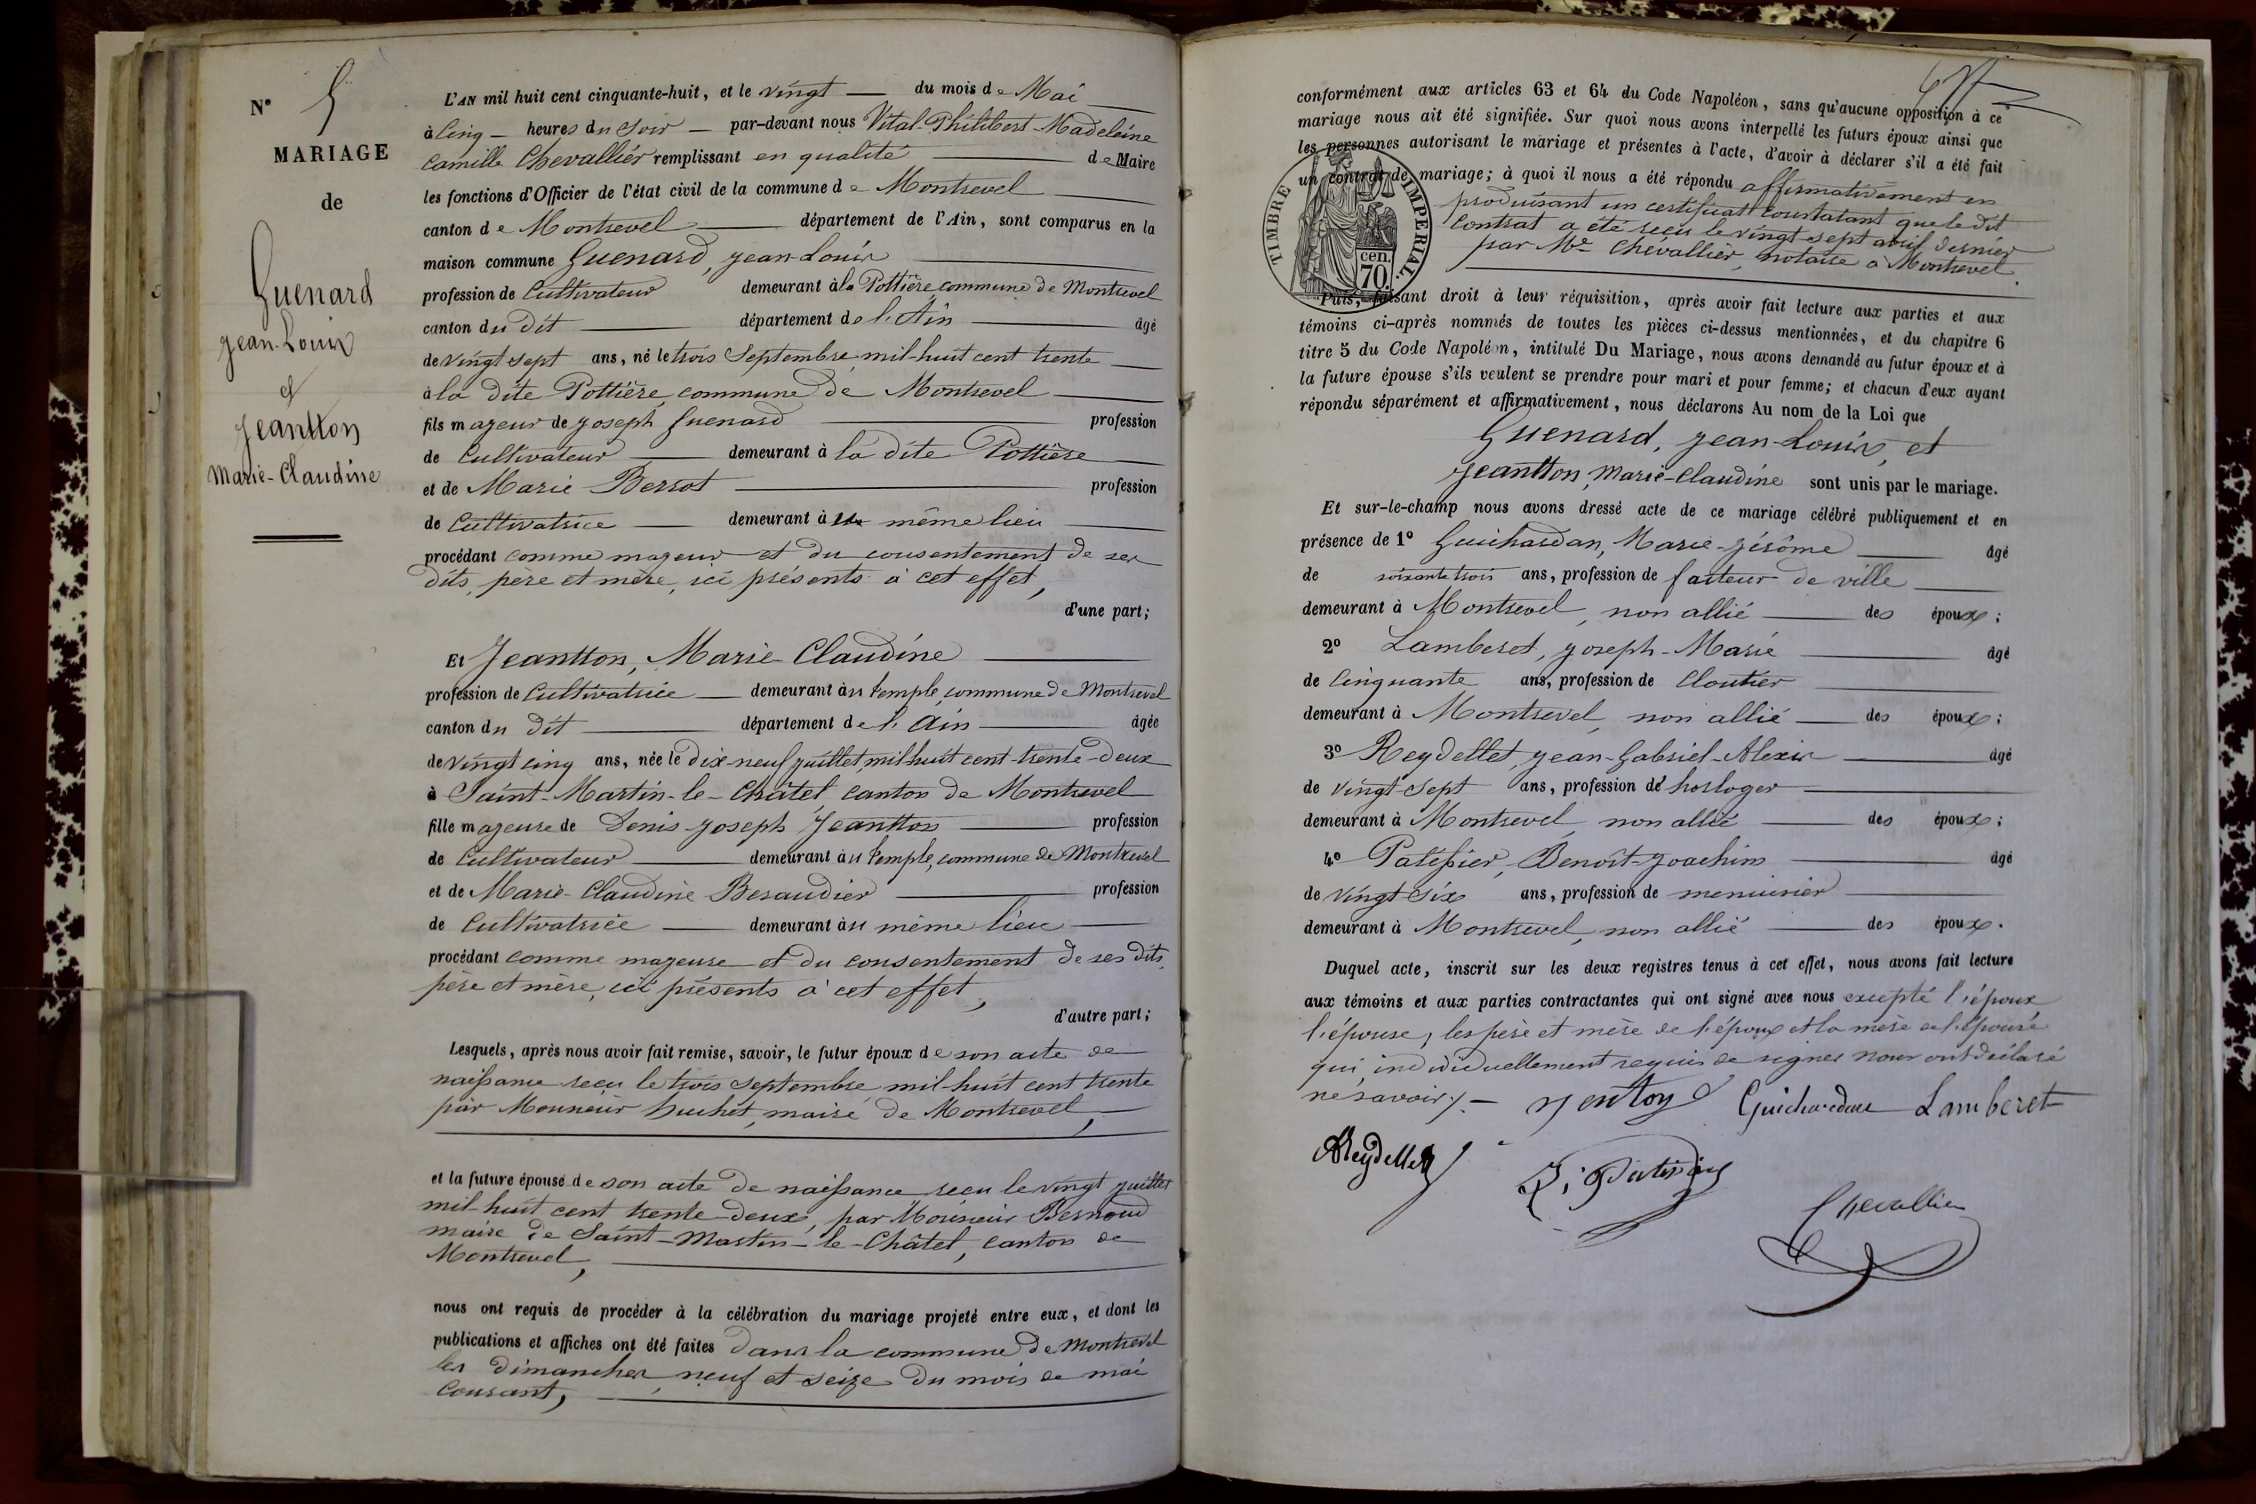 N° 5
MARIAGE
de
Guenard
Jean-Louis
et
Jeantton
Marie-Claudine
L'AN mil huit cent cinquante-huit, et le vingt du mois de Mai
à cinq heures du soir par-devant nous Vital-Philibert-Madeleine
Camille Chevallier remplissant en qualité de Maire
les fonctions d'Officier de l'état civil de la commune de Montrevel
canton de Montrevel département de l'Ain, sont comparus en la
maison commune Guenard, Jean-Louis
profession de Cultivateur demeurant à la Pottière commune de Montrevel
canton du dit département de l'Ain âgé
de vingt sept ans, né le trois Septembre mil-huit cent trente
à la dite Pottière, commune de Montrevel
fils majeur de Joseph Guenard profession
de Cultivateur demeurant à la dite Pottière
et de Marie Berrot profession
de Cultivatrice demeurant à même lieu
procédant comme majeur et du consentement de ses
dits, père et mère, ici présents à cet effet,
d'une part;
Et Jeantton, Marie Claudine
profession de Cultivatrice demeurant au temple, commune de Montrevel
canton du dit département de l'Ain âgée
de vingt cinq ans, née le dix-neuf juillet, mil-huit cent-trente-deux
à Saint-Martin-le-Châtel, canton de Montrevel
fille majeure de Denis-Joseph Jeantton profession
de Cultivateur demeurant au temple, commune de Montrevel
et de Marie-Claudine Beraudier profession
de Cultivatrice demeurant au même lieu
procédant comme majeure et du consentement de ses dits,
père et mère, ici présents à cet effet,
d'autre part;
Lesquels, après nous avoir fait remise, savoir, le futur époux de son acte de
naissance reçu le trois septembre mil-huit cent trente
par Monsieur huchet, maire de Montrevel,
et la future épouse de son acte de naissance reçu le vingt juillet
mil-huit cent trente-deux, par Monsieur Bernoud
maire de Saint-Martin-le-Châtel, canton de
Montrevel,
nous ont requis de procéder à la célébration du mariage projeté entre eux, et dont les
publications et affiches ont été faites dans la commune de Montrevel
les dimanches, neuf et seize du mois de mai
courant,
conformément aux articles 63 et 64 du Code Napoléon, sans qu'aucune opposition à ce
mariage nous ait été signifiée. Sur quoi nous avons interpellé les futurs époux ainsi que
les personnes autorisant le mariage et présentes à l'acte, d'avoir à déclarer s'il a été fait
un contrat de mariage; à quoi il nous a été répondu affirmativement en
produisant un certificat constatant que le dit
contrat a été reçu le vingt-sept avril dernier
par Me Chevallier, notaire à Montrevel
TIMBRE IMPERIAL.
cen.
70.
Puis, faisant droit à leur réquisition, après avoir fait lecture aux parties et aux
témoins ci-après nommés de toutes les pièces ci-dessus mentionnées, et du chapitre 6
titre 5 du Code Napoléon, intitulé Du Mariage, nous avons demandé au futur époux et à
la future épouse s'ils veulent se prendre pour mari et pour femme; et chacun d'eux ayant
répondu séparément et affirmativement, nous déclarons Au nom de la Loi que
Guenard, Jean-Louis, et
Jeantton, Marie-Claudine sont unis par le mariage.
Et sur-le-champ nous avons dressé acte de ce mariage célébré publiquement et en
présence de 1° Guichardan, Marie-Jérôme âgé
de soixante trois ans, profession de facteur de ville
demeurant à Montrevel, non allié des époux;
2° Lamberet, Joseph-Marie âgé
de Cinquante ans, profession de Cloutier
demeurant à Montrevel, non allié des époux;
3° Reydellet, Jean-Gabriel-Alexis âgé
de vingt-sept ans, profession de horloger
demeurant à Montrevel, non allié des époux;
4° Patissier, Benoît-Joachim âgé
de vingt-six ans, profession de menuisier
demeurant à Montrevel, non allié des époux.
Duquel acte, inscrit sur les deux registres tenus à cet effet, nous avons fait lecture
aux témoins et aux parties contractantes qui ont signé avec nous excepté l'époux
l'épouse, les père et mère de l'époux et la mère de l'épouse
qui, individuellement requis de signer nous ont déclaré
ne savoir.
Jentoy Guichardan Lamberet
Reydellet
Chevallier